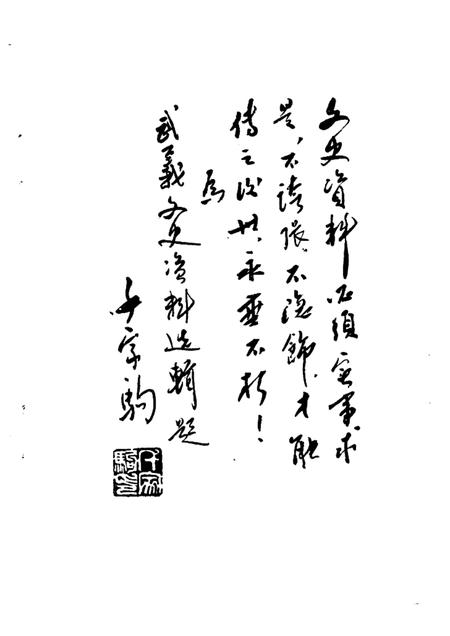 文史資料必須实事求
是，不誇張、不隐飾，才能
傳之後世永垂不朽！
为
武義文史資料选輯題
千家駒
千家駒印